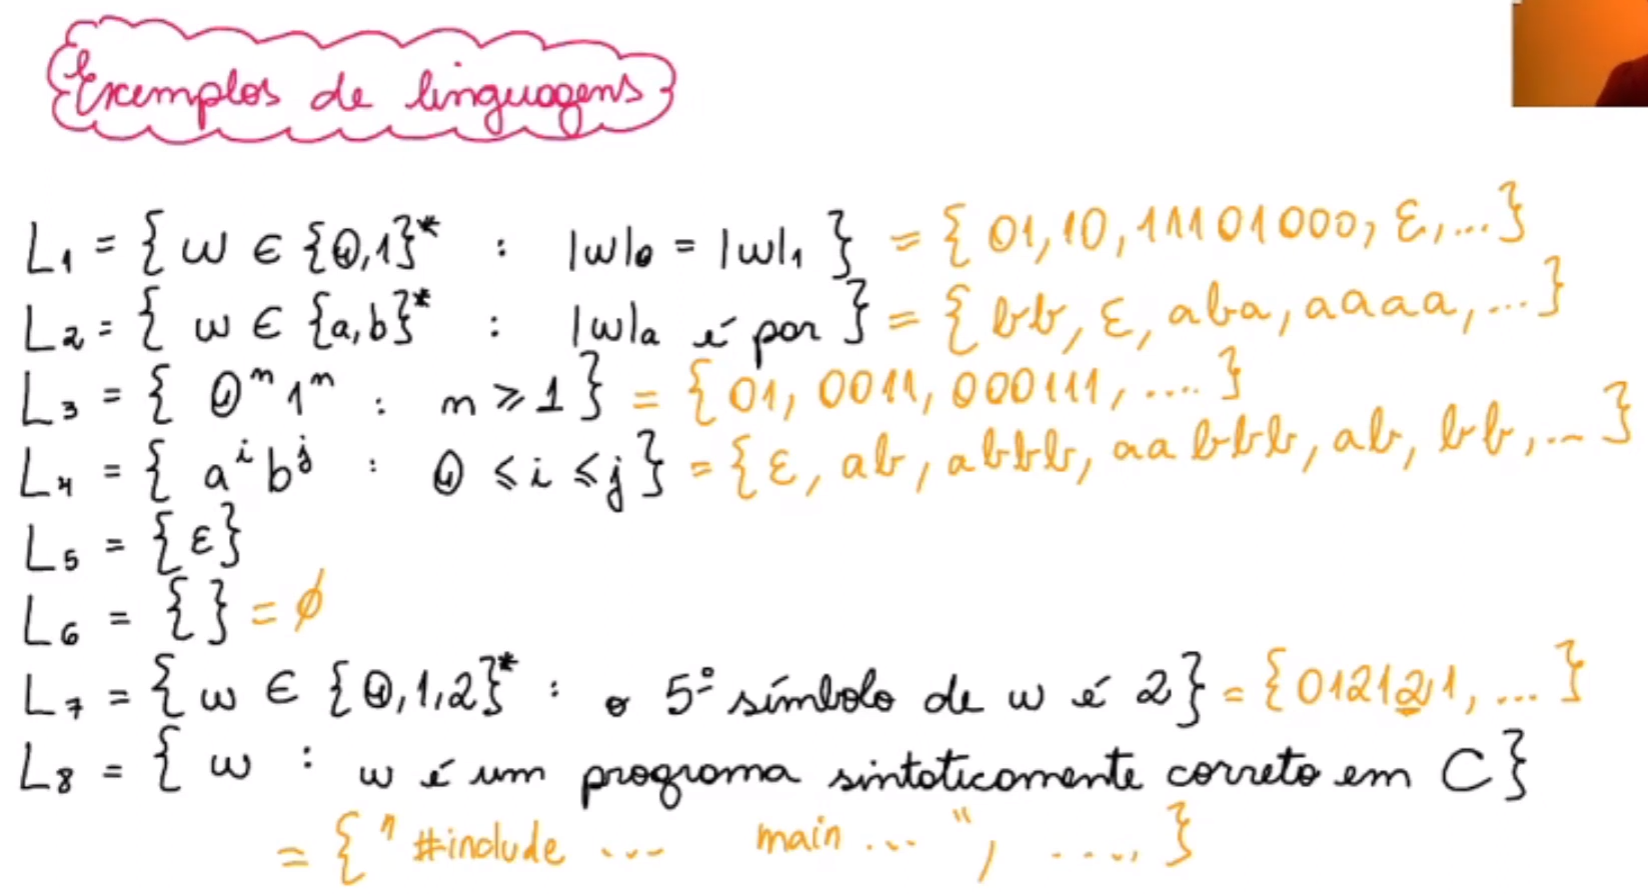 Exemplos de linguagens
L₁ = { w ∈ {0,1}* : |w|₀ = |w|₁ } = { 01, 10, 11101000, ε, ... }
L₂ = { w ∈ {a,b}* : |w|ₐ é par } = { bb, ε, aba, aaaa, ... }
L₃ = { 0ⁿ1ⁿ : n ≥ 1 } = { 01, 0011, 000111, .... }
L₄ = { aⁱbʲ : 0 ≤ i ≤ j } = { ε, ab, abbb, aabbb, ab, bb, ... }
L₅ = {ε}
L₆ = {} = ∅
L₇ = { w ∈ {0,1,2}* : o 5º símbolo de w é 2 } = { 012121, ... }
L₈ = { w : w é um programa sintaticamente correto em C }
= { " #include ... main ... ", ..... }